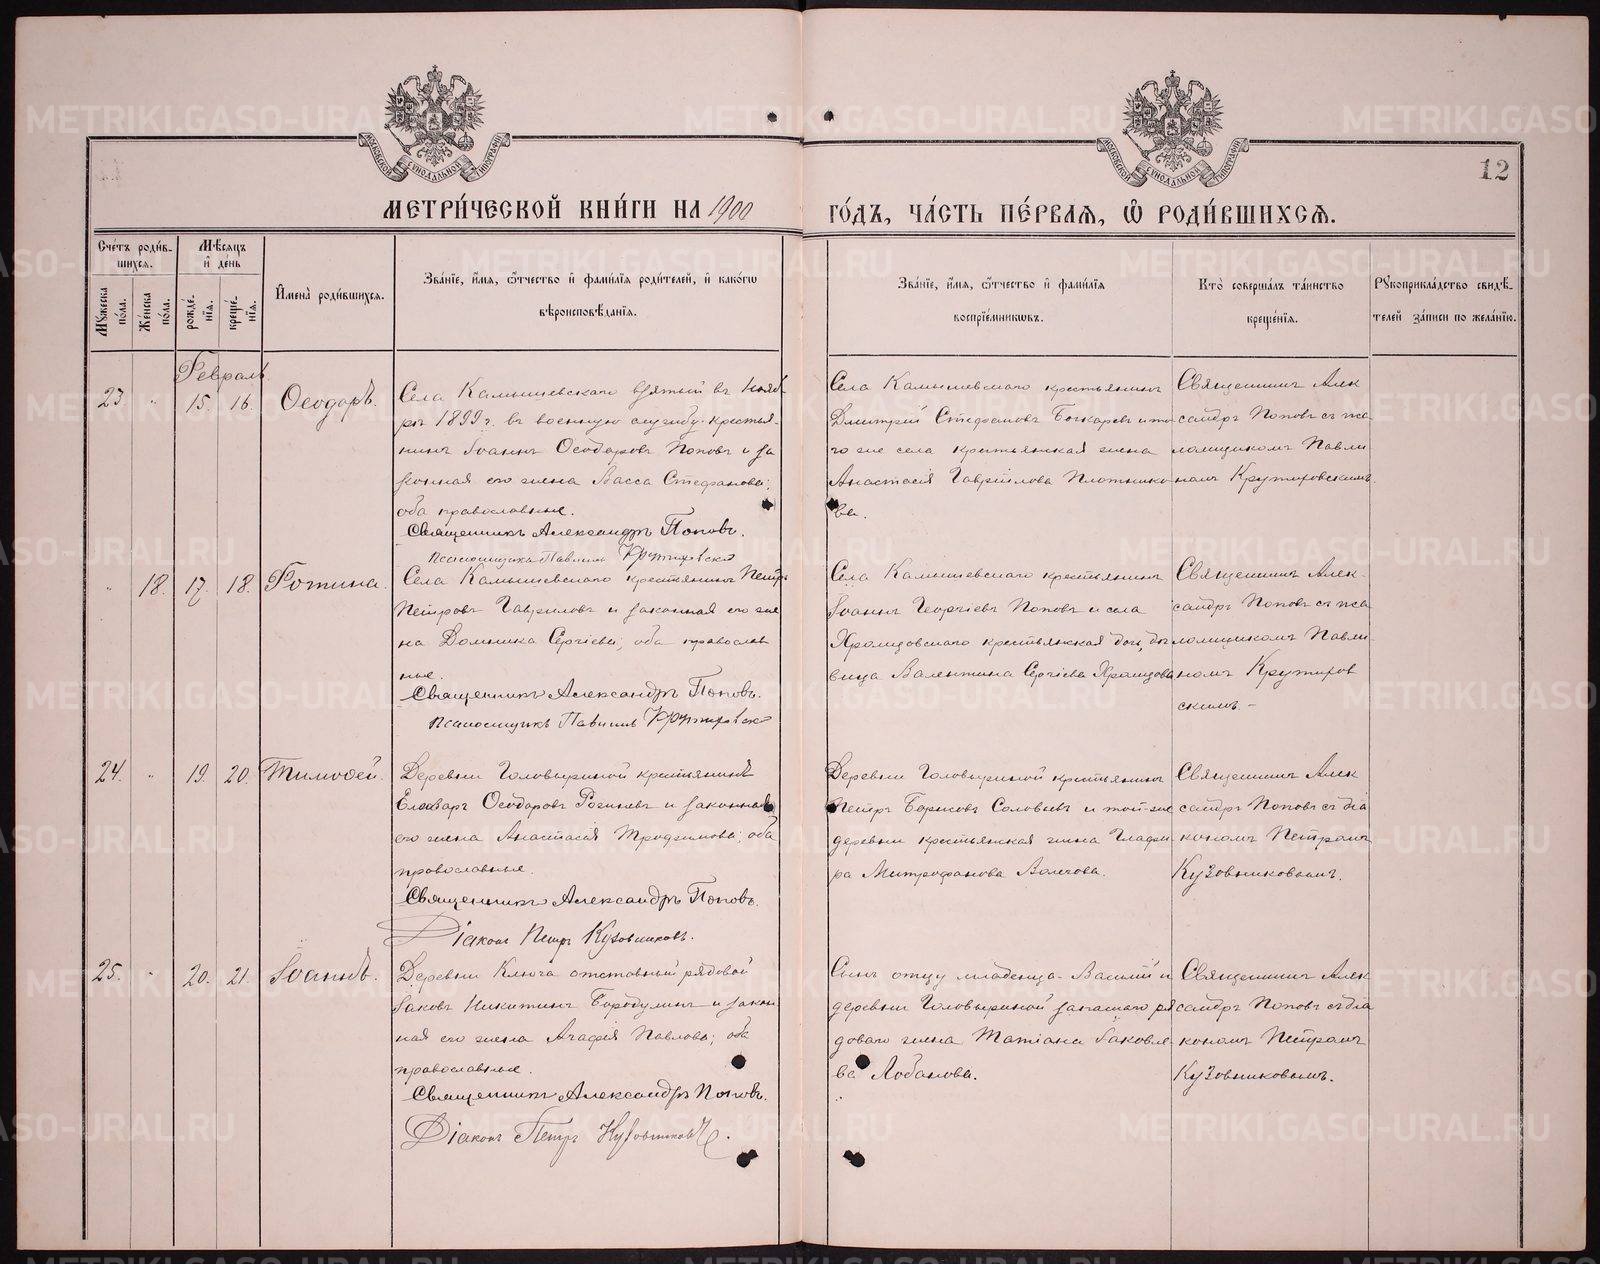 12
МЕТРИ́ЧЕСКОЙ КНИ́ГИ НА 1900 ГО́ДЪ, ЧА́СТЬ ПЕ́РВАѦ, Ѡ҆ РОДИ́ВШИХСѦ.
Сче́тъ роди́вшихсѧ.
Мꙋ́жеска по́ла.
Же́нска по́ла.
Мѣ́сѧцъ и҆ де́нь
рожде́нїѧ.
креще́нїѧ.
И҆мена̀ роди́вшихсѧ.
Зва́нїе, и҆́мѧ, ѻ҆́тчество и҆ фами́лїѧ роди́телей, и҆ како́гѡ
вѣроисповѣ́данїѧ.
Зва́нїе, и҆́мѧ, ѻ҆́тчество и҆ фами́лїѧ
воспрїе́мникѡвъ.
Кто̀ соверша́лъ та́инство
креще́нїѧ.
Рꙋкоприкла́дство свидѣ́-
телей за́писи по жела́нїю.
Февраль
23 " 15. 16. Ѳеодоръ.
Села Камышевскаго взятый въ Нояб
рѣ 1899 г. въ военную службу крестья-
нинъ Іоаннъ Ѳеодоровъ Поповъ и за
конная его жена Васса Стефанова;
оба православные.
Священникъ Александръ Поповъ.
Псаломщикъ Павлинъ Кружировскій
Села Камышевскаго крестьянинъ
Димитрій Стефановъ Бочкаревъ и то
го же села крестьянская жена
Анастасія Гавріилова Плотнико
ва.
Священникъ Алек
сандръ Поповъ съ пса
ломщикомъ Павли
номъ Кружировскимъ.
" 18. 17. 18. Фотина.
Села Камышевскаго крестьянинъ Петръ
Петровъ Гавриловъ и законная его же
на Домника Сергіева; оба православ
ные.
Священникъ Александръ Поповъ.
Псаломщикъ Павлинъ Кружировскій
Села Камышевскаго крестьянинъ
Іоаннъ Георгіевъ Поповъ и села
Храмцовскаго крестьянская дочь, дѣ
вица Валентина Сергіева Храмцова
Священникъ Алек-
сандръ Поповъ съ пса
ломщикомъ Павли-
номъ Кружиров
скимъ. -
24. " 19. 20. Тимоѳей.
Деревни Головыриной крестьянинъ
Елеазаръ Ѳеодоровъ и законная
его жена Анастасія Трофимова; оба
православные.
Священникъ Александръ Поповъ.
Діаконъ Петръ Кузовниковъ.
Деревни Головыриной крестьянинъ
Петръ Борисовъ Соловьевъ и той же
деревни крестьянская жена Глафи
ра Митрофанова Волегова.
Священникъ Алек
сандръ Поповъ съ діа
кономъ Петромъ
Кузовниковымъ.
25. " 20. 21. Іоаннъ.
Деревни Ключа отставный рядовой
Іаковъ Никитинъ Бородулинъ и закон
ная его жена Агафія Павлова; оба
православные.
Священникъ Александръ Поповъ.
Діаконъ Петръ Кузовниковъ.
Сынъ отцу младенца Василій и
деревни Головыриной запаснаго ря
доваго жена Татіана Іаковле
ва Лобанова.
Священникъ Алек
сандръ Поповъ съ діа
кономъ Петромъ
Кузовниковымъ.
METRIKI.GASO-URAL.RU